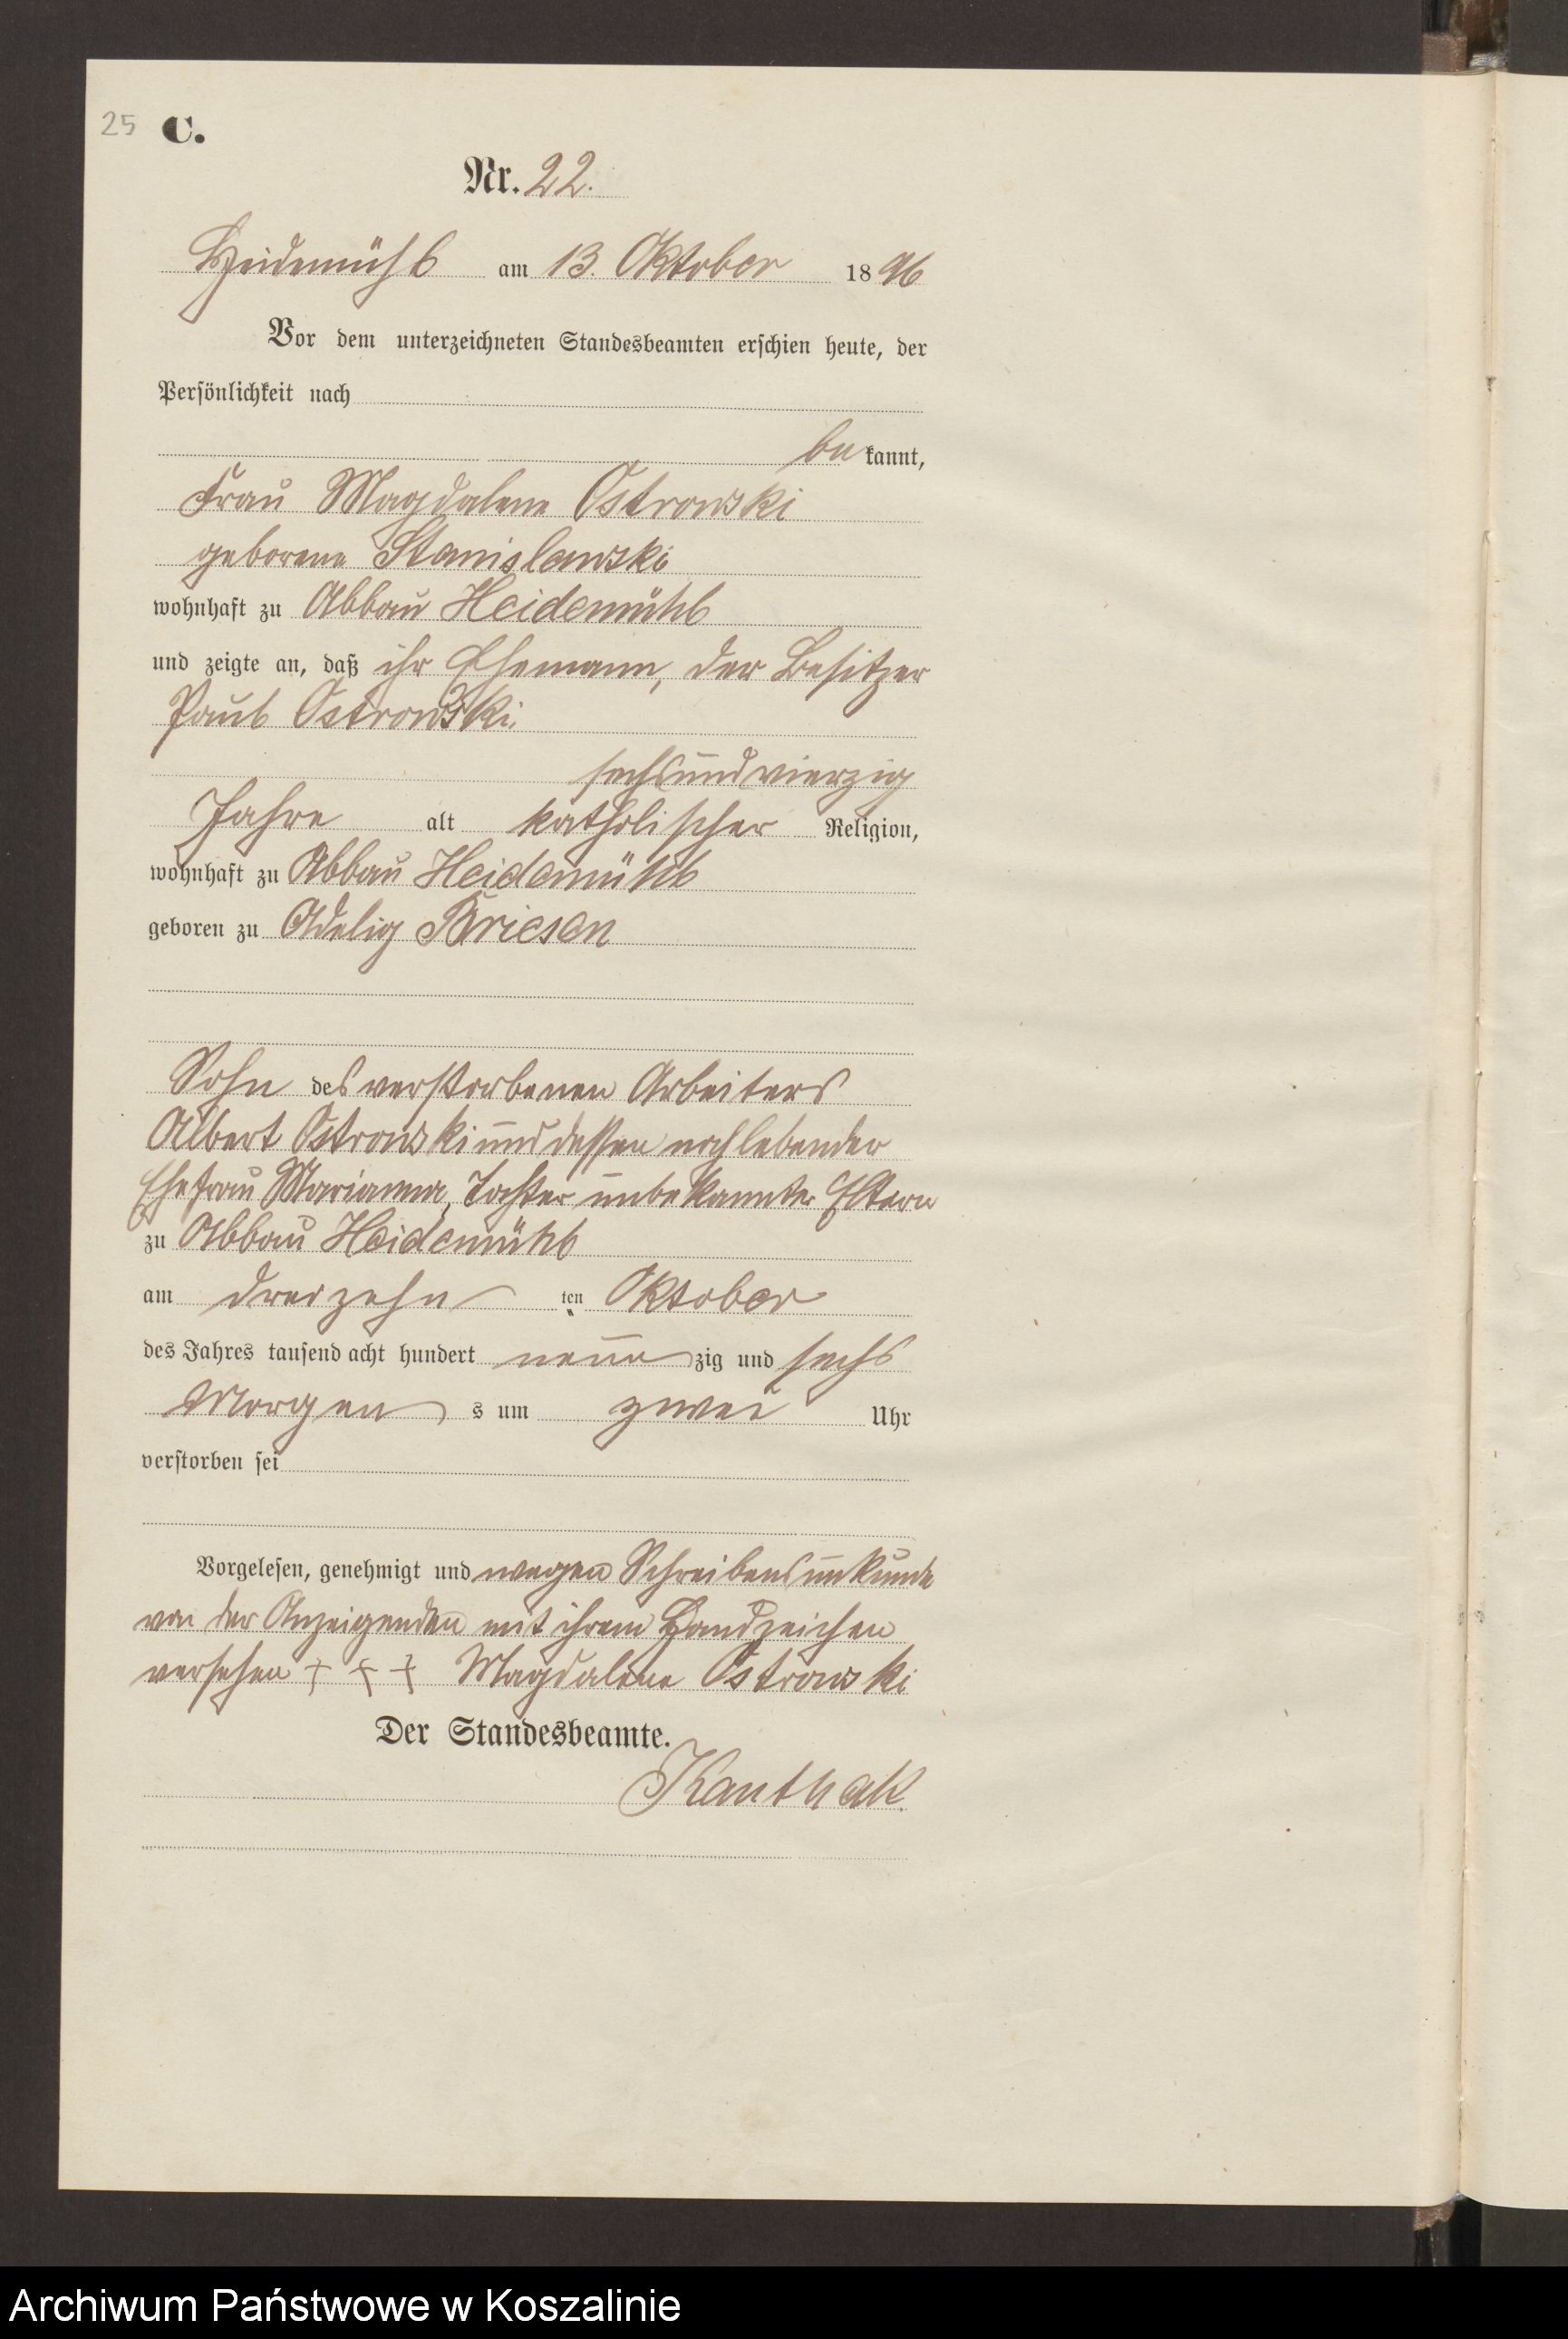 25 C.
Nr. 22.
Heidemühl am 13. Oktober 1896
Vor dem unterzeichneten Standesbeamten erschien heute, der
Persönlichkeit nach
be kannt,
Frau Magdalene Ostrowski
geborene Stanislawski
wohnhaft zu Abbau Heidemühl
und zeigte an, daß ihr Ehemann, der Besitzer
Paul Ostrowski
sechsundvierzig
Jahre alt katholischer Religion,
wohnhaft zu Abbau Heidemühl
geboren zu Adelig Briesen
Sohn des verstorbenen Arbeiters
Albert Ostrowski und dessen noch lebender
Ehefrau Marianna, Tochter unbekannter Eltern
zu Abbau Heidemühl
am dreizehn ten Oktober
des Jahres tausend acht hundert neun zig und sechs
Morgen s um zwei Uhr
verstorben sei
Vorgelesen, genehmigt und wegen Schreibensunkunde
von der Anzeigenden mit ihrem Handzeichen
versehen + + + Magdalene Ostrowski
Der Standesbeamte.
Kanthak
Archiwum Państwowe w Koszalinie